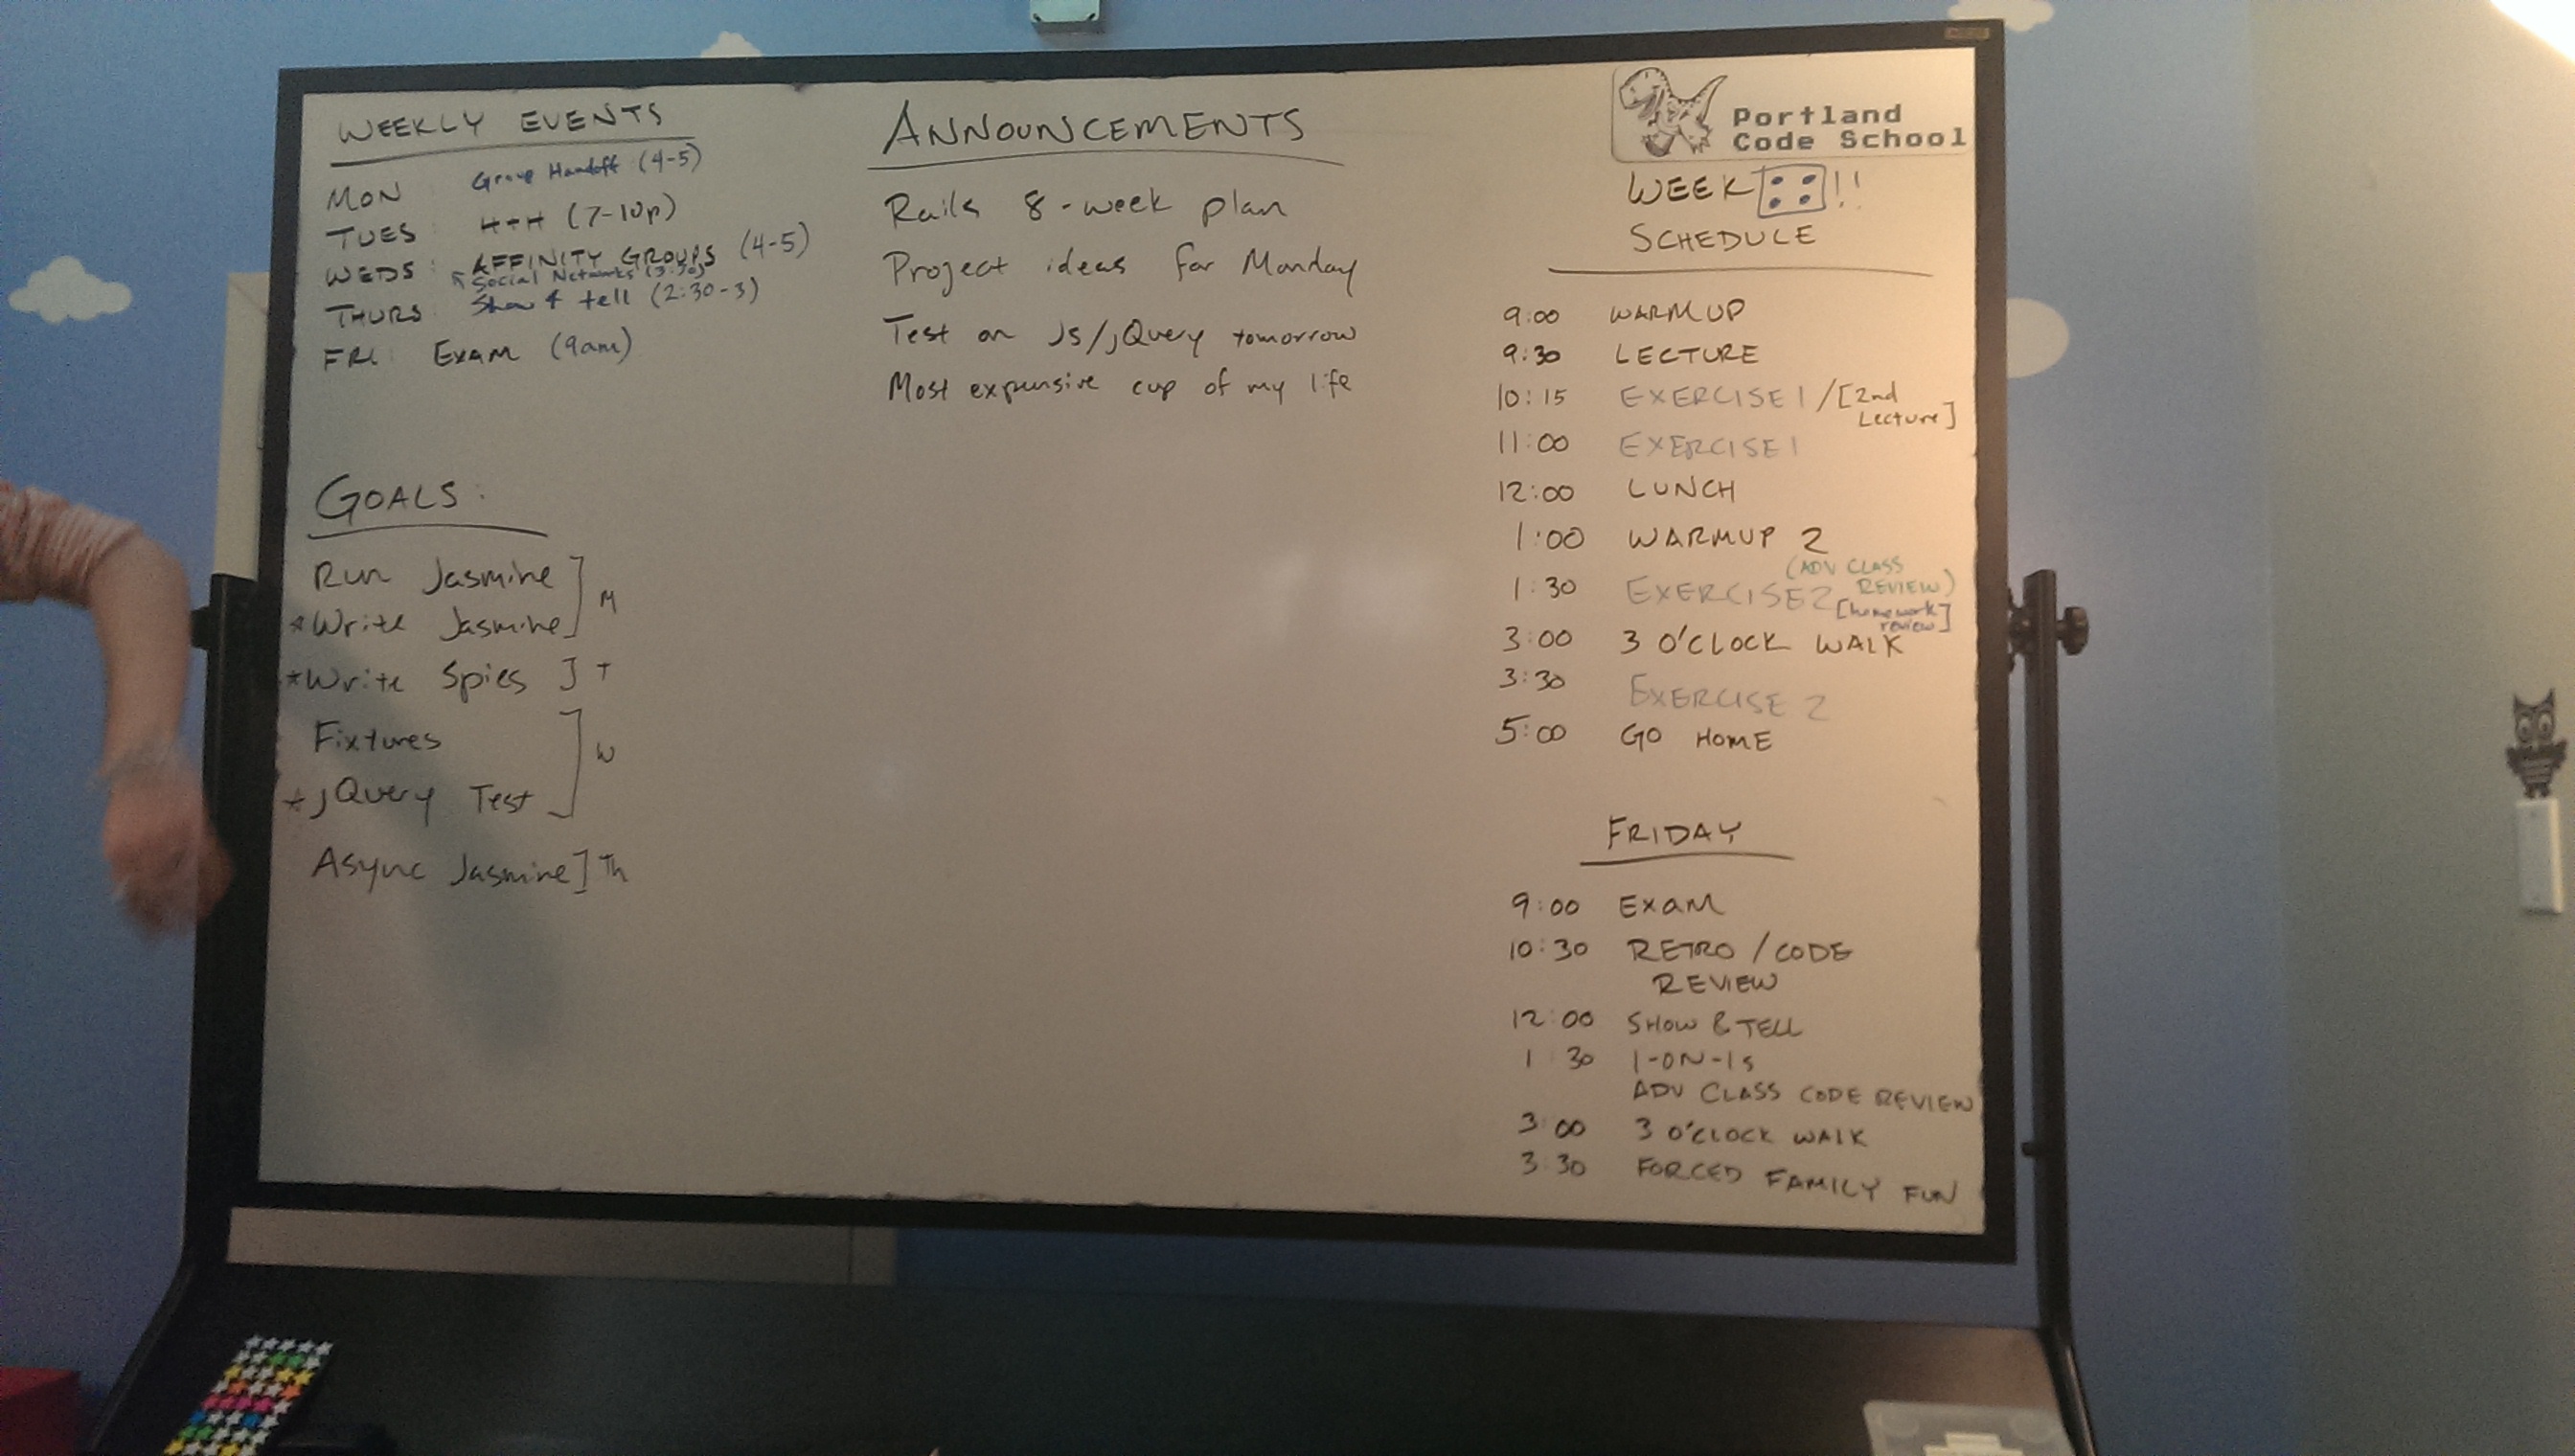 WEEKLY EVENTS
MON : Group Handoff (4-5)
TUES : H+H (7-10p)
WEDS : AFFINITY GROUPS (4-5)
Social Networks (3:30)
THURS : Show & tell (2:30-3)
FRI : EXAM (9am)
GOALS:
Run Jasmine ] M
*Write Jasmine
*Write Spies ] T
Fixtures ] W
*jQuery Test
Async Jasmine ] Th
ANNOUNCEMENTS
Rails 8-week plan
Project ideas for Monday
Test on Js/jQuery tomorrow
Most expensive cup of my life
Portland
Code School
WEEK !!
SCHEDULE
9:00 WARMUP
9:30 LECTURE
10:15 EXERCISE 1 / [2nd
Lecture]
11:00 EXERCISE 1
12:00 LUNCH
1:00 WARMUP 2
(ADV CLASS
REVIEW)
1:30 EXERCISE 2 [homework
review]
3:00 3 O'CLOCK WALK
3:30 EXERCISE 2
5:00 GO HOME
FRIDAY
9:00 EXAM
10:30 RETRO / CODE
REVIEW
12:00 SHOW & TELL
1:30 1-ON-1s
ADV CLASS CODE REVIEW
3:00 3 O'CLOCK WALK
3:30 FORCED FAMILY FUN